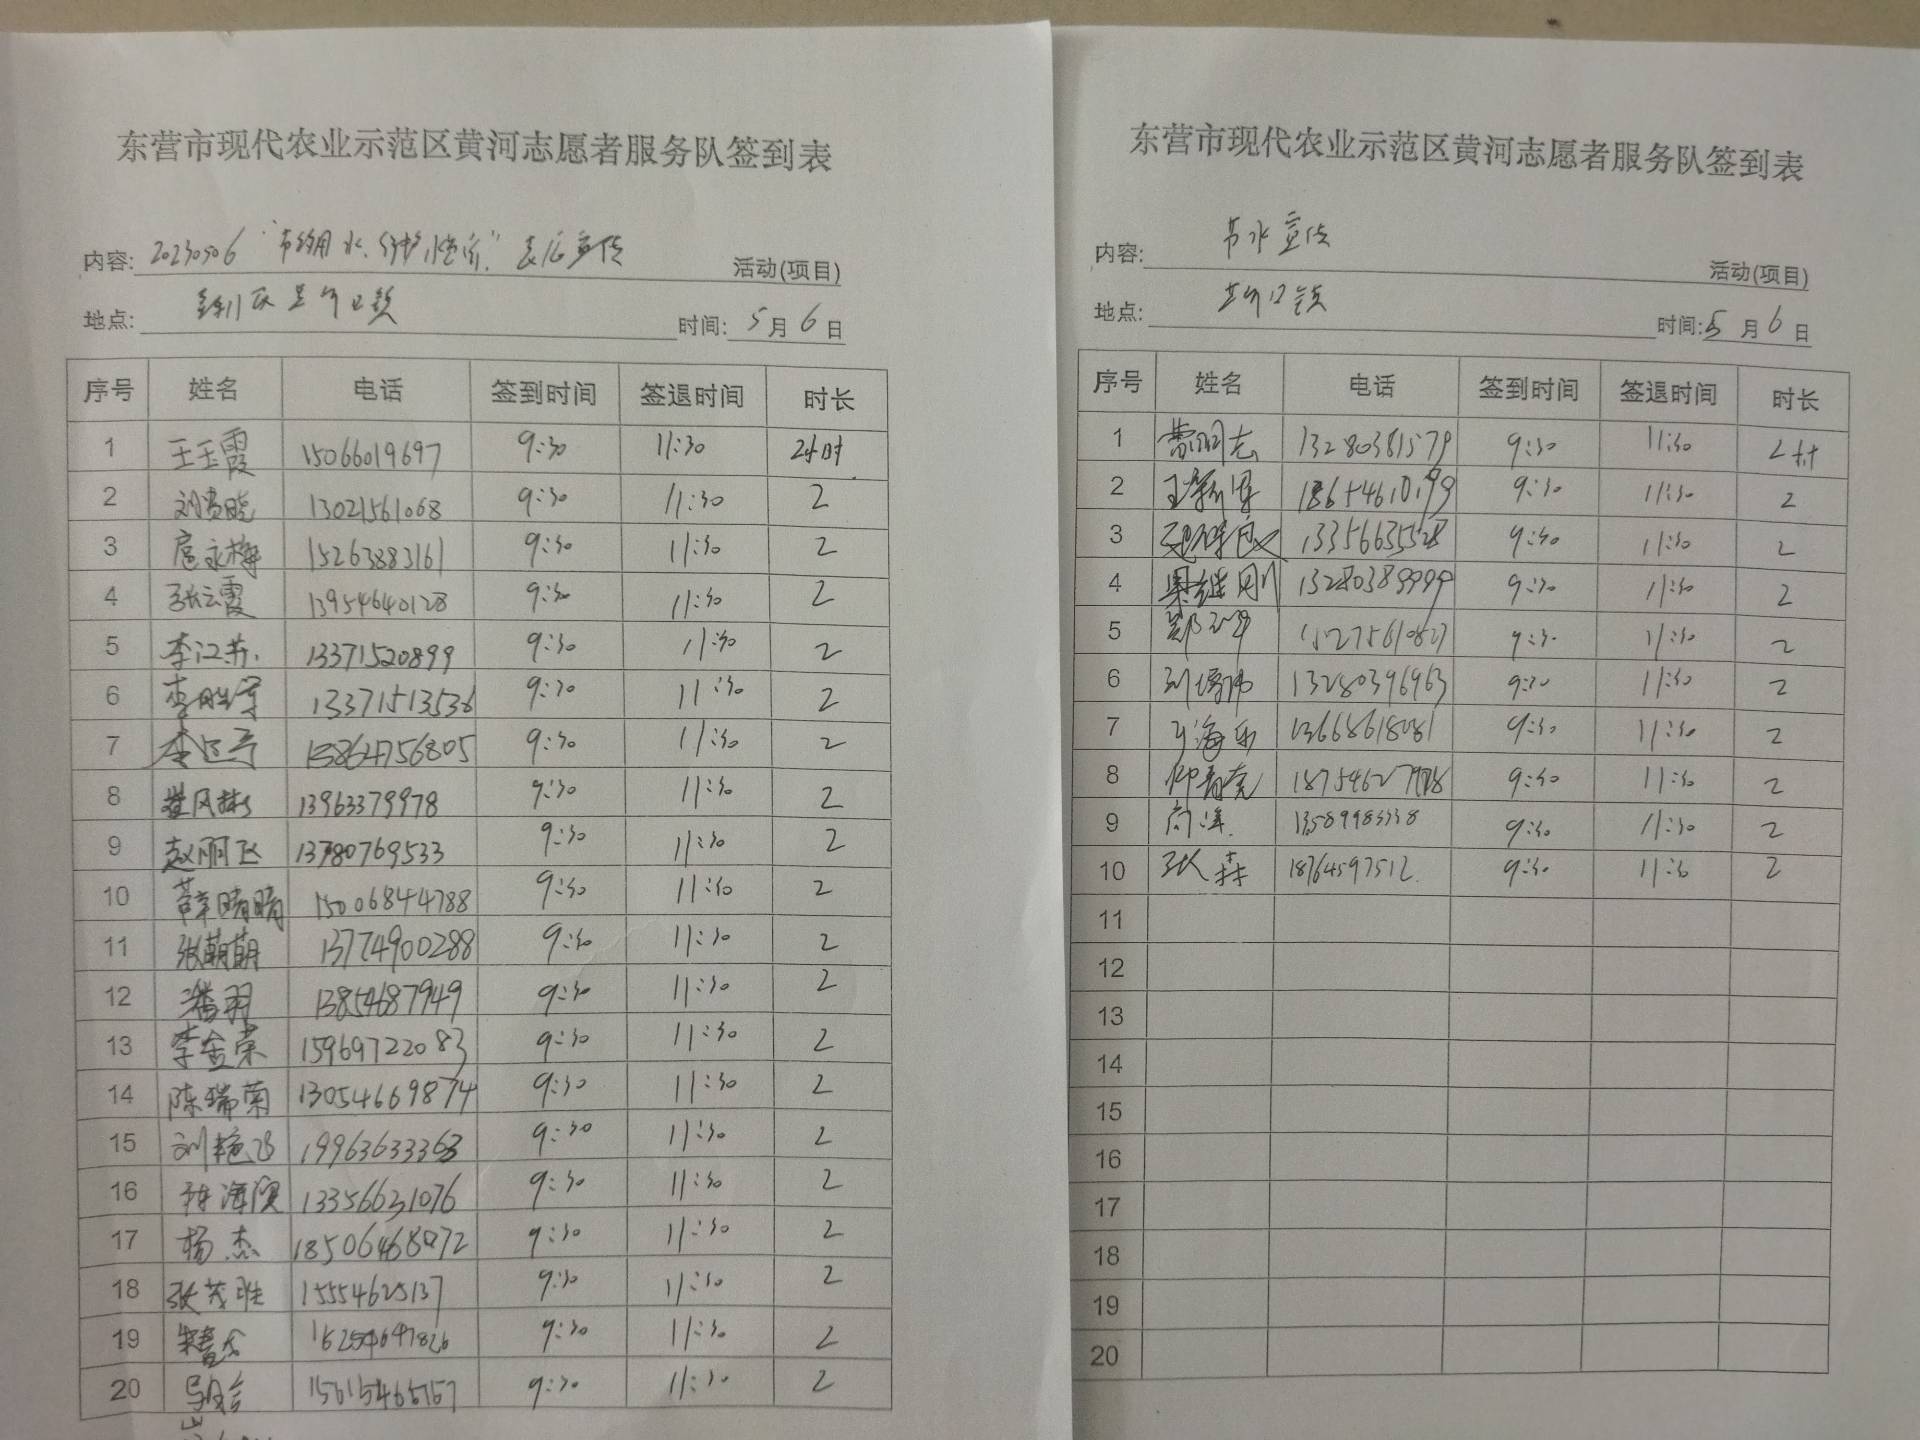 东营市现代农业示范区黄河志愿者服务队签到表
内容: 20230506 "节约用水、 " 宣传 活动(项目)
地点: 垦利区 口镇 时间: 5月6日
序号 姓名 电话 签到时间 签退时间 时长
1 王玉霞 15066019697 9:30 11:30 2小时
2 刘贵晓 13021561068 9:30 11:30 2
3 扈永梅 15263883161 9:30 11:30 2
4 张云霞 13954640128 9:30 11:30 2
5 李江燕 13371520899 9:30 11:30 2
6 李胜军 13371513536 9:30 11:30 2
7 李 13864756805 9:30 11:30 2
8 13963379978 9:30 11:30 2
9 赵丽飞 13780769533 9:30 11:30 2
10 薛晴晴 15006844788 9:30 11:30 2
11 张萌萌 13774900288 9:30 11:30 2
12 潘羽 13854687949 9:30 11:30 2
13 李金荣 15969722083 9:30 11:30 2
14 陈瑞菊 13054669874 9:30 11:30 2
15 刘艳飞 19963633363 9:30 11:30 2
16 海滨 13356631076 9:30 11:30 2
17 杨杰 18506468072 9:30 11:30 2
18 张茂胜 15554625137 9:30 11:30 2
19 9:30 11:30 2
20 15615465157 9:30 11:30 2
东营市现代农业示范区黄河志愿者服务队签到表
内容: 节水宣传 活动(项目)
地点: 口镇 时间: 5月6日
序号 姓名 电话 签到时间 签退时间 时长
1 曹洞志 13280381579 9:30 11:30 2小时
2 王新军 9:30 11:30 2
3 13356635528 9:30 11:30 2
4 果继刚 13280389999 9:30 11:30 2
5 郑 15275610827 9:30 11:30 2
6 刘 13280396963 9:30 11:30 2
7 于海东 13668618081 9:30 11:30 2
8 9:30 11:30 2
9 尚洋 13589983338 9:30 11:30 2
10 张森 18764597512 9:30 11:30 2
11
12
13
14
15
16
17
18
19
20